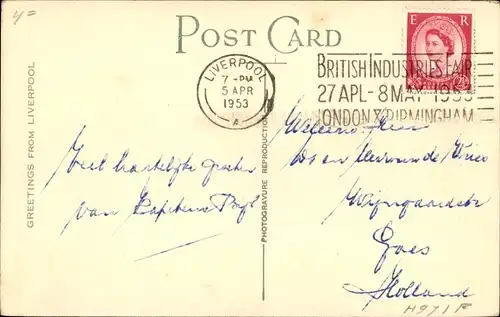 4=
POST CARD
GREETINGS FROM LIVERPOOL
PHOTOGRAVURE REPRODUCTION
LIVERPOOL
7 - PM
5 APR
1953
A
BRITISH INDUSTRIES FAIR
27 APL - 8 MAY 1953
LONDON & BIRMINGHAM
E R
Veel hartelijke groeten
van Kapitein
Heer
en Mevrouw de Vries
Wijngaardstr
Goes
Holland
H971F